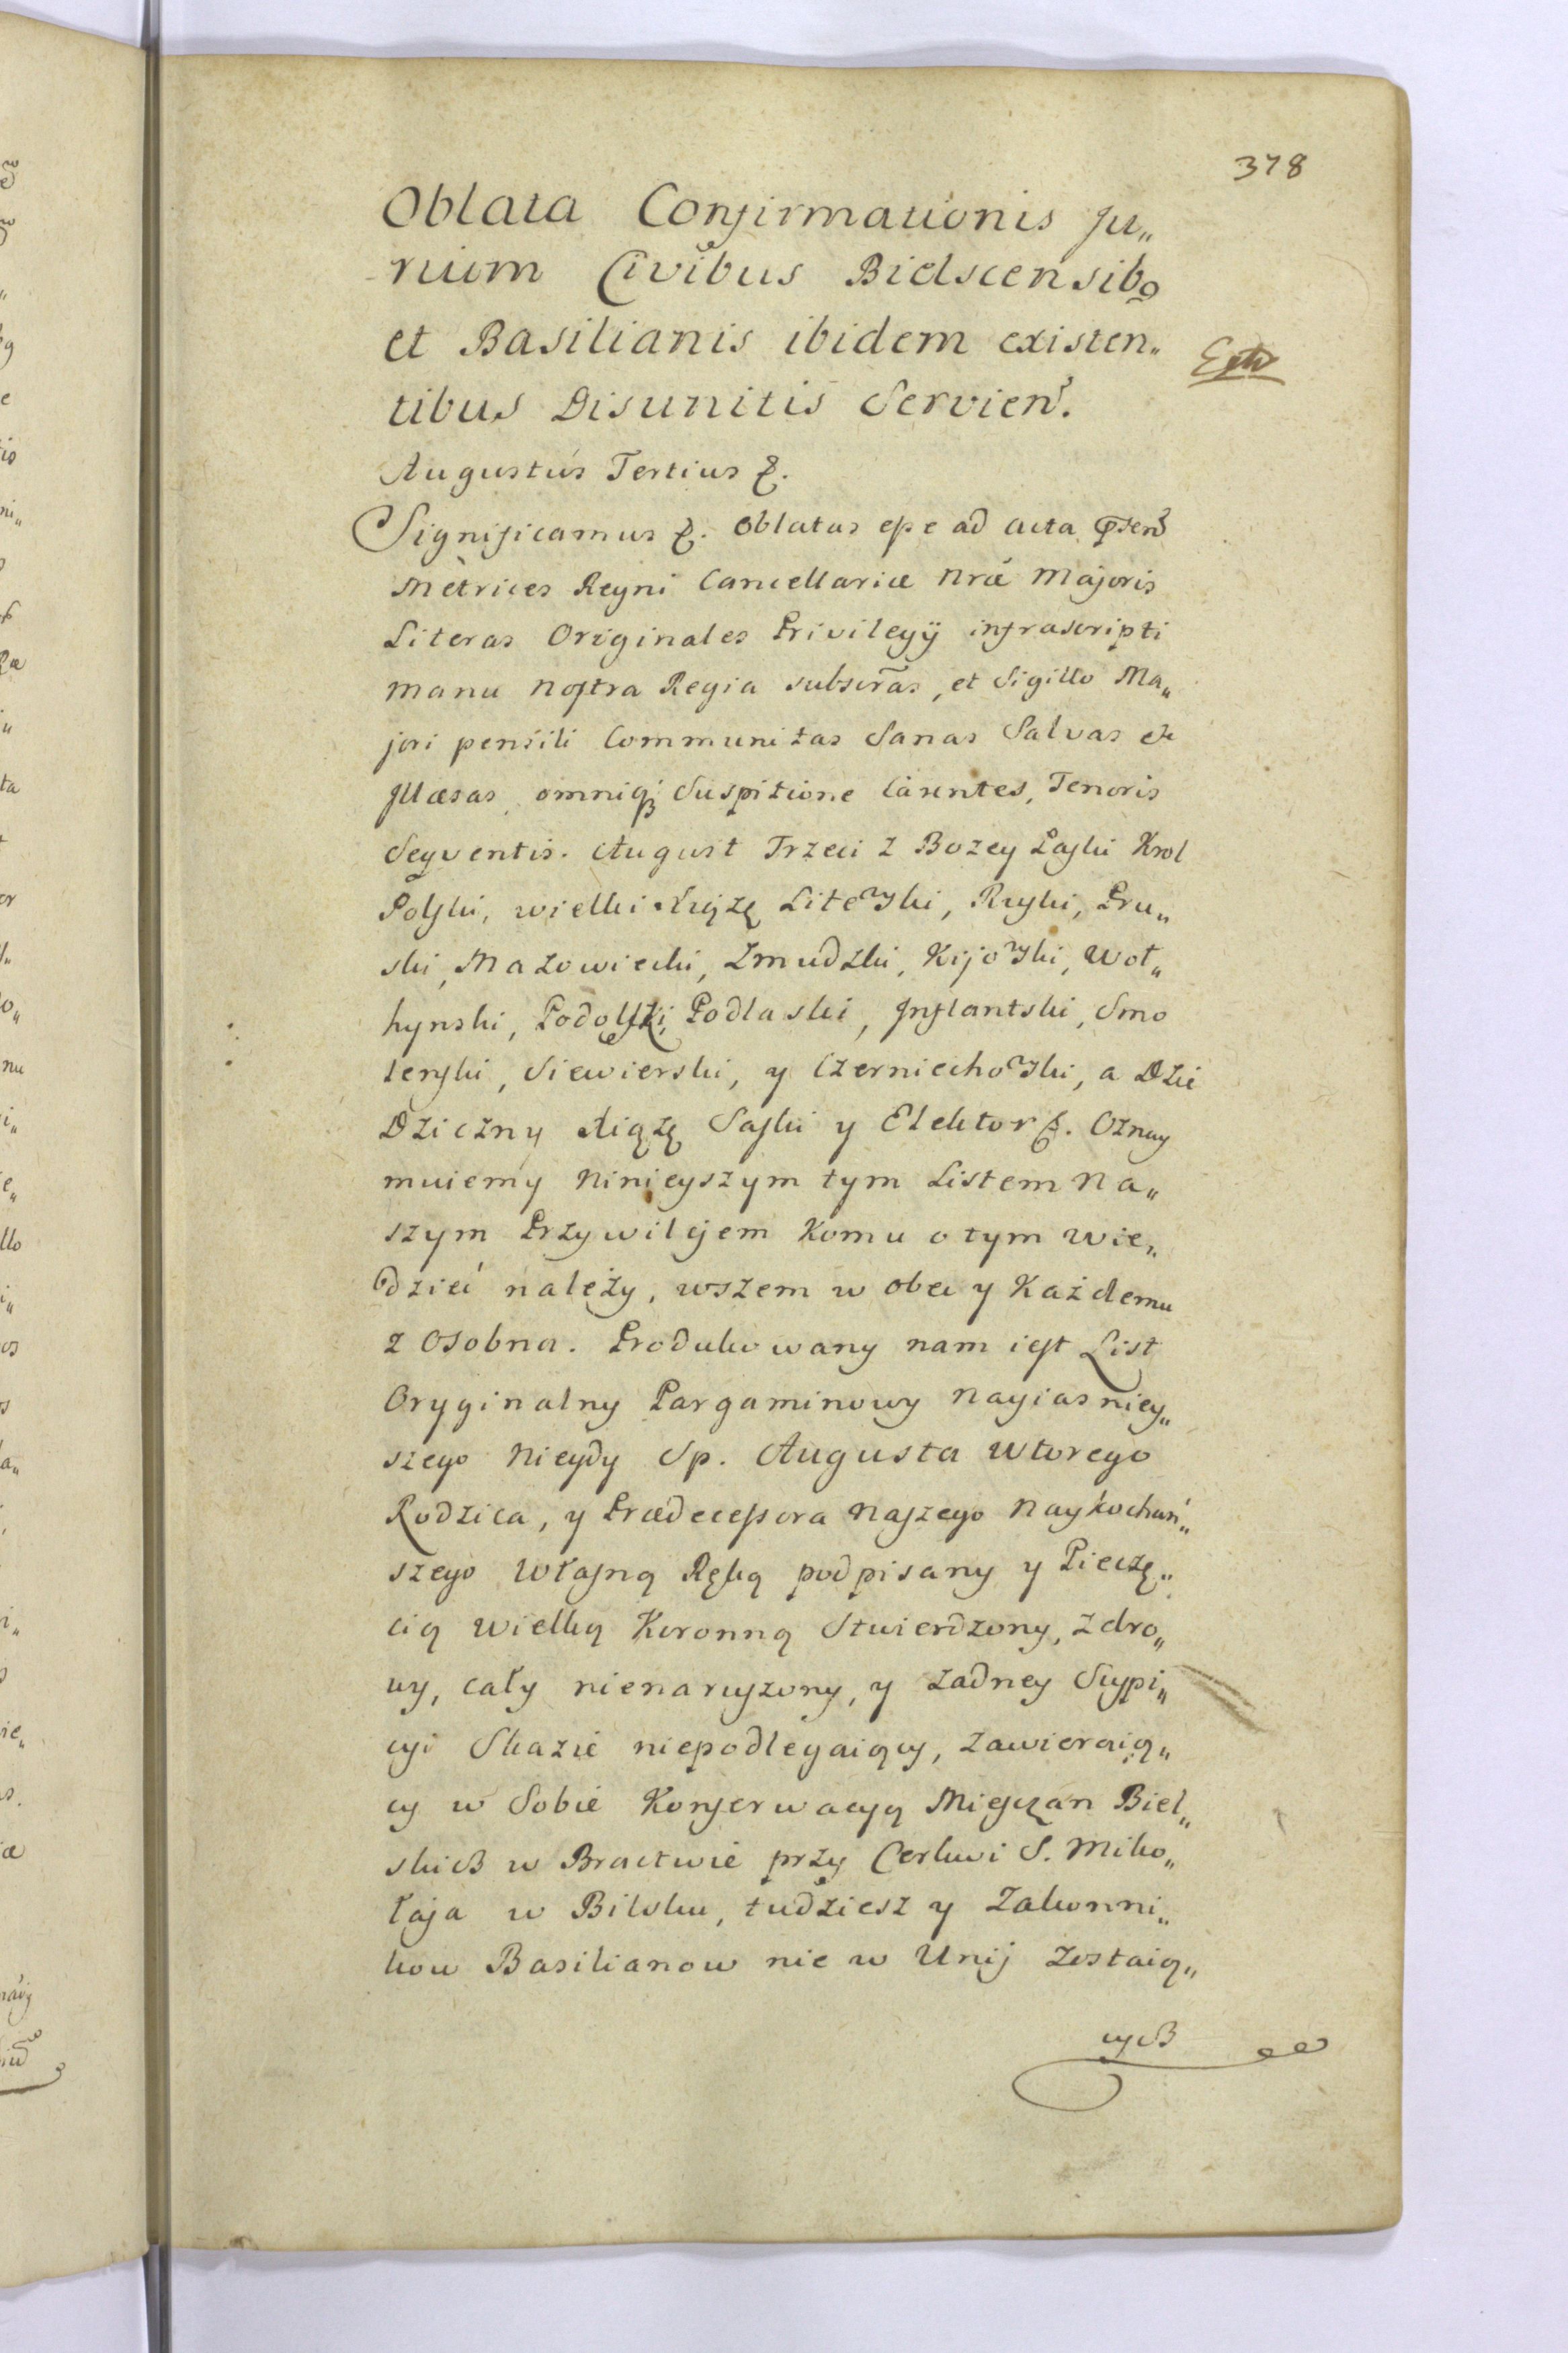 378
Oblata Confirmationis Ju„
rium Civibus Bielscensibꝰ
et Basilianis ibidem existen„
tibus Disunitis Servien̄.
Extr
Augustus Tertius &.
Significamus &. Oblatas esse ad Acta p̄sen̄
Metrices Regni Cancellariæ Nræ Majoris
Literas Originales Privilegij infrascripti
manu nostra Regia subscr̄as, et Sigillo Ma„
jori pensili Communitas Sanas Salvas et
Illæsas, omniq; Suspitione Carentes, Tenoris
Seqventis. August Trzeci z Bozey Łaski Krol
Polski, wielki Xiąże Litewski, Ruski, Pru„
ski, Mazowiecki, Zmudzki, Kijowski, Woł„
hynski, Podolski, Podlaski, Inflantski, Smo
lenski, Siewierski, y Czerniechowski, a Dzie
Dziczny Xiążę Saski y Elektor &. Oznay
muiemy Ninieyszym tym Listem Na„
szym Przywilejem Komu o tym wie„
dzieć należy, wszem w obec y Każdemu
z Osobna. Produkowany nam iest List
Oryginalny Pargaminowy Nayiasniey„
szego Niegdy Sp. Augusta Wtorego
Rodzica, y Prædecessora Naszego Naykochań„
szego Własną Ręką podpisany y Pieczę„
cią wielką Koronną Stwierdzony, zdro„
wy, cały nienaruszony, y zadney Suspi„
cyi Skazie niepodlegaiący, zawieraią„
cy w Sobie Konserwacyą Miesczan Biel„
skich w Bractwie przy Cerkwi S. Miko„
łaja w Bilsku, tudziesz y Zakonni„
kow Basilianow nie w Unij zostaią„
cych